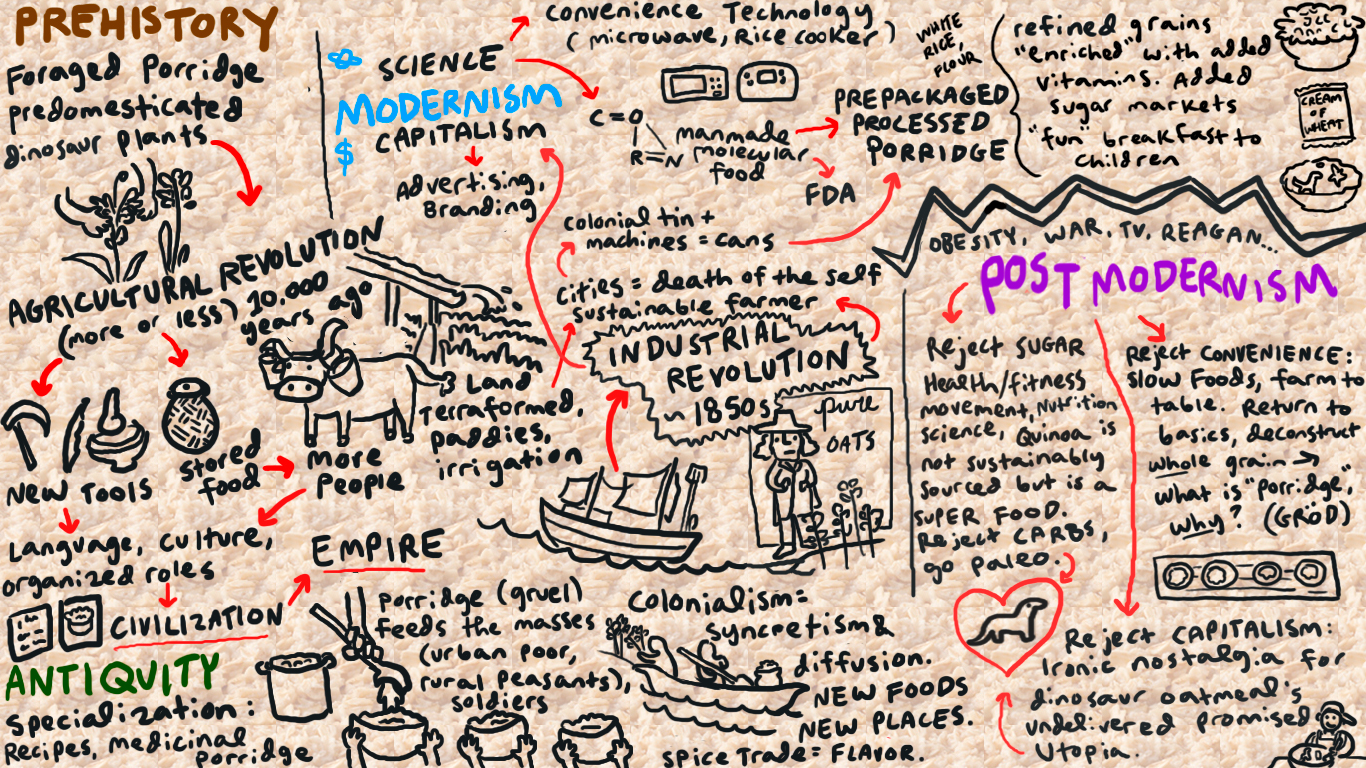 PREHISTORY
Foraged Porridge
predomesticated
dinosaur plants
AGRICULTURAL REVOLUTION
(more or less) 10,000
years ago
NEW TOOLS
stored
food
more
People
Language, culture,
organized roles
CIVILIZATION
EMPIRE
ANTIQUITY
specialization:
Recipes, medicinal
porridge
Porridge (gruel)
feeds the masses
(urban poor,
rural peasants),
soldiers
Land
Terraformed,
paddies,
irrigation
Colonialism=
syncretism &
diffusion.
NEW FOODS
NEW PLACES.
spice Trade = FLAVOR.
INDUSTRIAL
REVOLUTION
~ 1850s
pure
OATS
cities = death of the self
sustainable farmer
colonial tin +
machines = cans
$
SCIENCE
MODERNISM
CAPITALISM
Advertising,
Branding
convenience Technology
(microwave, Rice cooker)
C=O
R=N
manmade
molecular
food
FDA
PREPACKAGED
PROCESSED
PORRIDGE
WHITE
RICE,
FLOUR
refined grains
"enriched" with added
vitamins. Added
sugar markets
"fun" breakfast to
children
CREAM
OF
WHEAT
OBESITY, WAR, TV, REAGAN...
POST MODERNISM
Reject SUGAR
Health/fitness
movement, Nutrition
science, Quinoa is
not sustainably
sourced but is a
SUPER FOOD.
Reject CARBS,
go paleo.
Reject CONVENIENCE:
Slow Foods, farm to
table. Return to
basics, deconstruct
whole grain →
what is "porridge,"
why? (GRÖD)
Reject CAPITALISM:
Ironic nostalgia for
dinosaur oatmeal's
undelivered promised
Utopia.